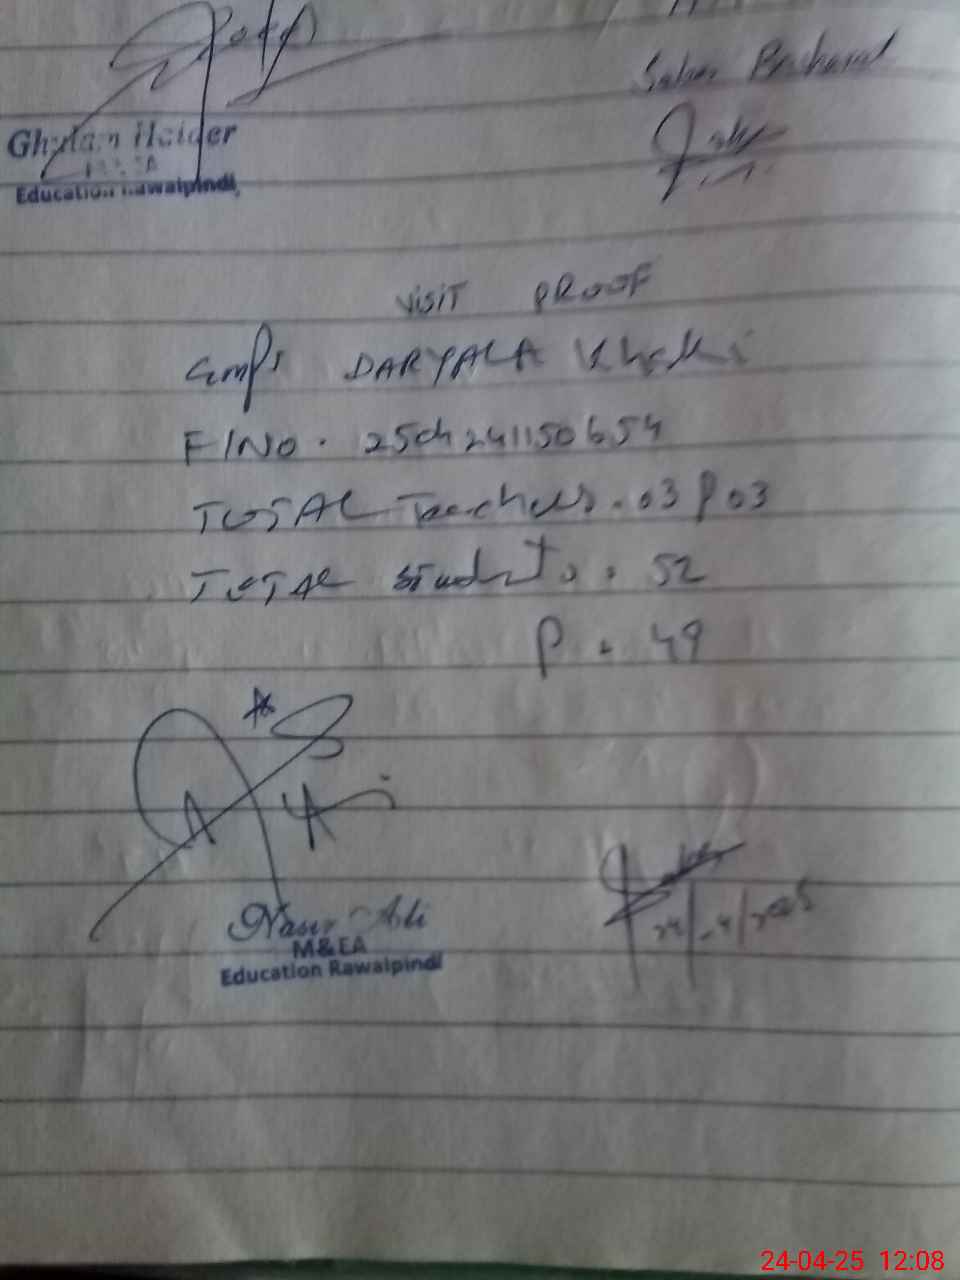 Ghulam Haider
Education Rawalpindi
VISIT PROOF
GMPS DARYALA Khaki
F/NO. 25ch241150654
TOTAL Teachers. 03 P 03
TOTAL Students. 52
P. 49
Nasir Ali
M&EA
Education Rawalpindi
24/4/2025
24-04-25 12:08